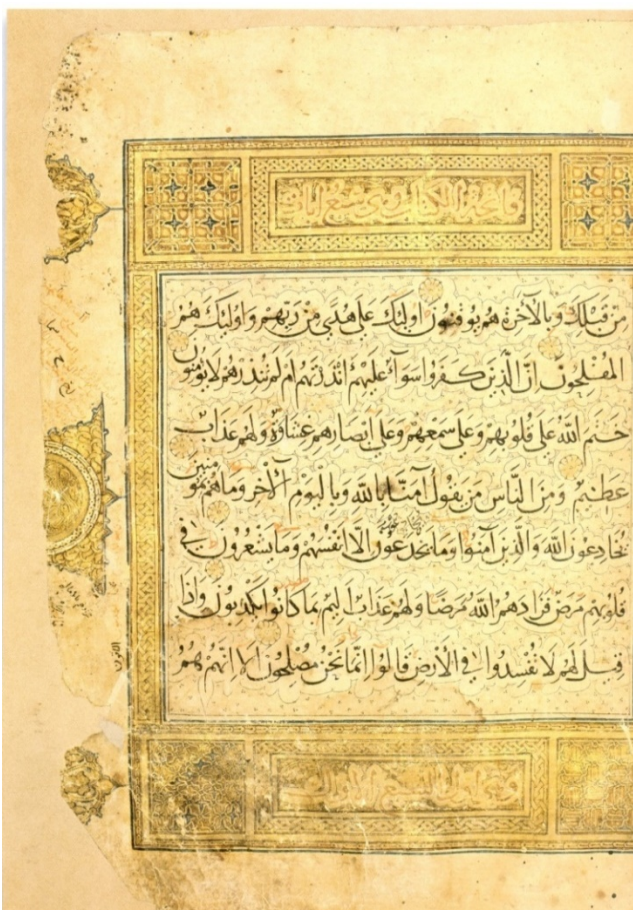 فاتحة الكتاب وهي سبع ايات
مِنْ قَبْلِكَ وَبِالْآخِرَةِ هُمْ يُوقِنُونَ اُولَيِكَ عَلَى هُدًى مِنْ رَبِّهِمْ وَاُولَيِكَ هُمُ
الْمُفْلِحُونَ اِنَّ الَّذِينَ كَفَرُوا سَوَآءٌ عَلَيْهِمْ اَنْذَرْتَهُمْ اَمْ لَمْ تُنْذِرْهُمْ لَا يُؤْمِنُونَ
خَتَمَ اللَّهُ عَلَى قُلُوبِهِمْ وَعَلَى سَمْعِهِمْ وَعَلَى اَبْصَارِهِمْ غِشَاوَةٌ وَلَهُمْ عَذَابٌ
عَظِيمٌ وَمِنَ النَّاسِ مَنْ يَقُولُ آمَنَّا بِاللَّهِ وَبِالْيَوْمِ الْآخِرِ وَمَا هُمْ بِمُؤْمِنِينَ
يُخَادِعُونَ اللَّهَ وَالَّذِينَ آمَنُوا وَمَا يَخْدَعُونَ اِلَّا اَنْفُسَهُمْ وَمَا يَشْعُرُونَ فِي
قُلُوبِهِمْ مَرَضٌ فَزَادَهُمُ اللَّهُ مَرَضًا وَلَهُمْ عَذَابٌ اَلِيمٌ بِمَا كَانُوا يَكْذِبُونَ وَاِذَا
قِيلَ لَهُمْ لَا تُفْسِدُوا فِي الْاَرْضِ قَالُوا اِنَّمَا نَحْنُ مُصْلِحُونَ اَلَا اِنَّهُمْ هُمُ